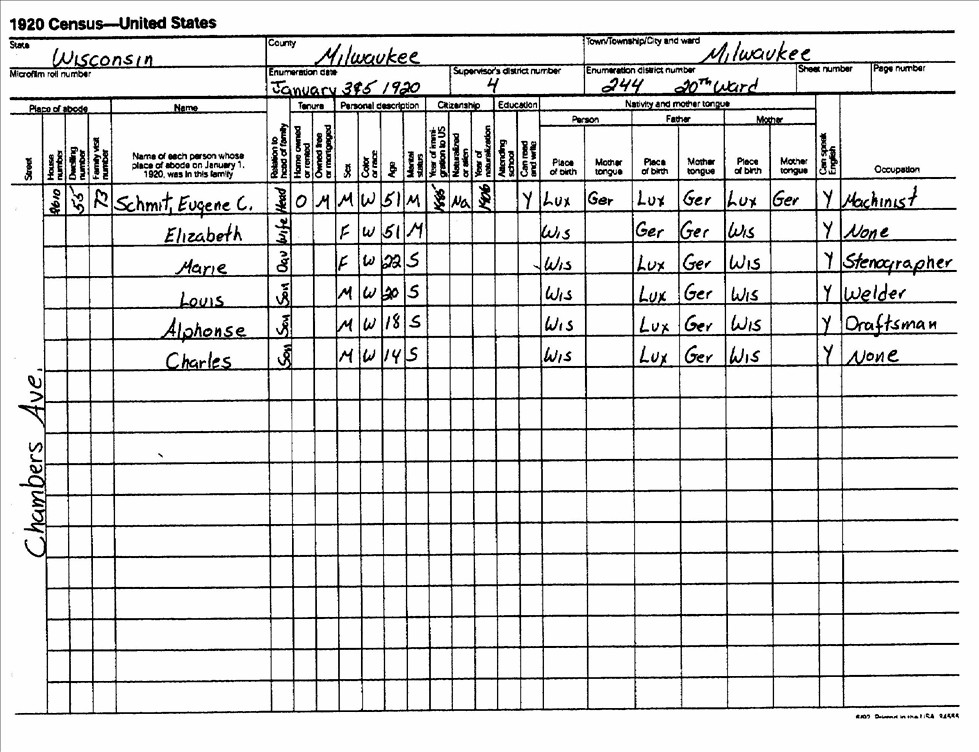 1920 Census—United States
State County Town/Township/City and ward
Wisconsin Milwaukee Milwaukee
Microfilm roll number Enumeration date Supervisor's district number Enumeration district number Sheet number Page number
January 3&5 1920 4 244 20th Ward
Place of abode Name Tenure Personal description Citizenship Education Nativity and mother tongue
Person Father Mother
Street House number Dwelling number Family visit number Name of each person whose place of abode on January 1, 1920, was in this family Relation to head of family Home owned or rented Owned free or mortgaged Sex Color or race Age Marital status Year of immigration to US Naturalized or alien Year of naturalization Attending school Can read and write Place of birth Mother tongue Place of birth Mother tongue Place of birth Mother tongue Can speak English Occupation
55 73 Schmit, Eugene C. Head O M M W 51 M Na Y Lux Ger Lux Ger Lux Ger Y Machinist
Elizabeth Wife F W 51 M Wis Ger Ger Wis Y None
Marie Dau F W 22 S Wis Lux Ger Wis Y Stenographer
Louis Son M W 20 S Wis Lux Ger Wis Y Welder
Alphonse Son M W 18 S Wis Lux Ger Wis Y Draftsman
Charles Son M W 14 S Wis Lux Ger Wis Y None
Chambers Ave.
Printed in the USA